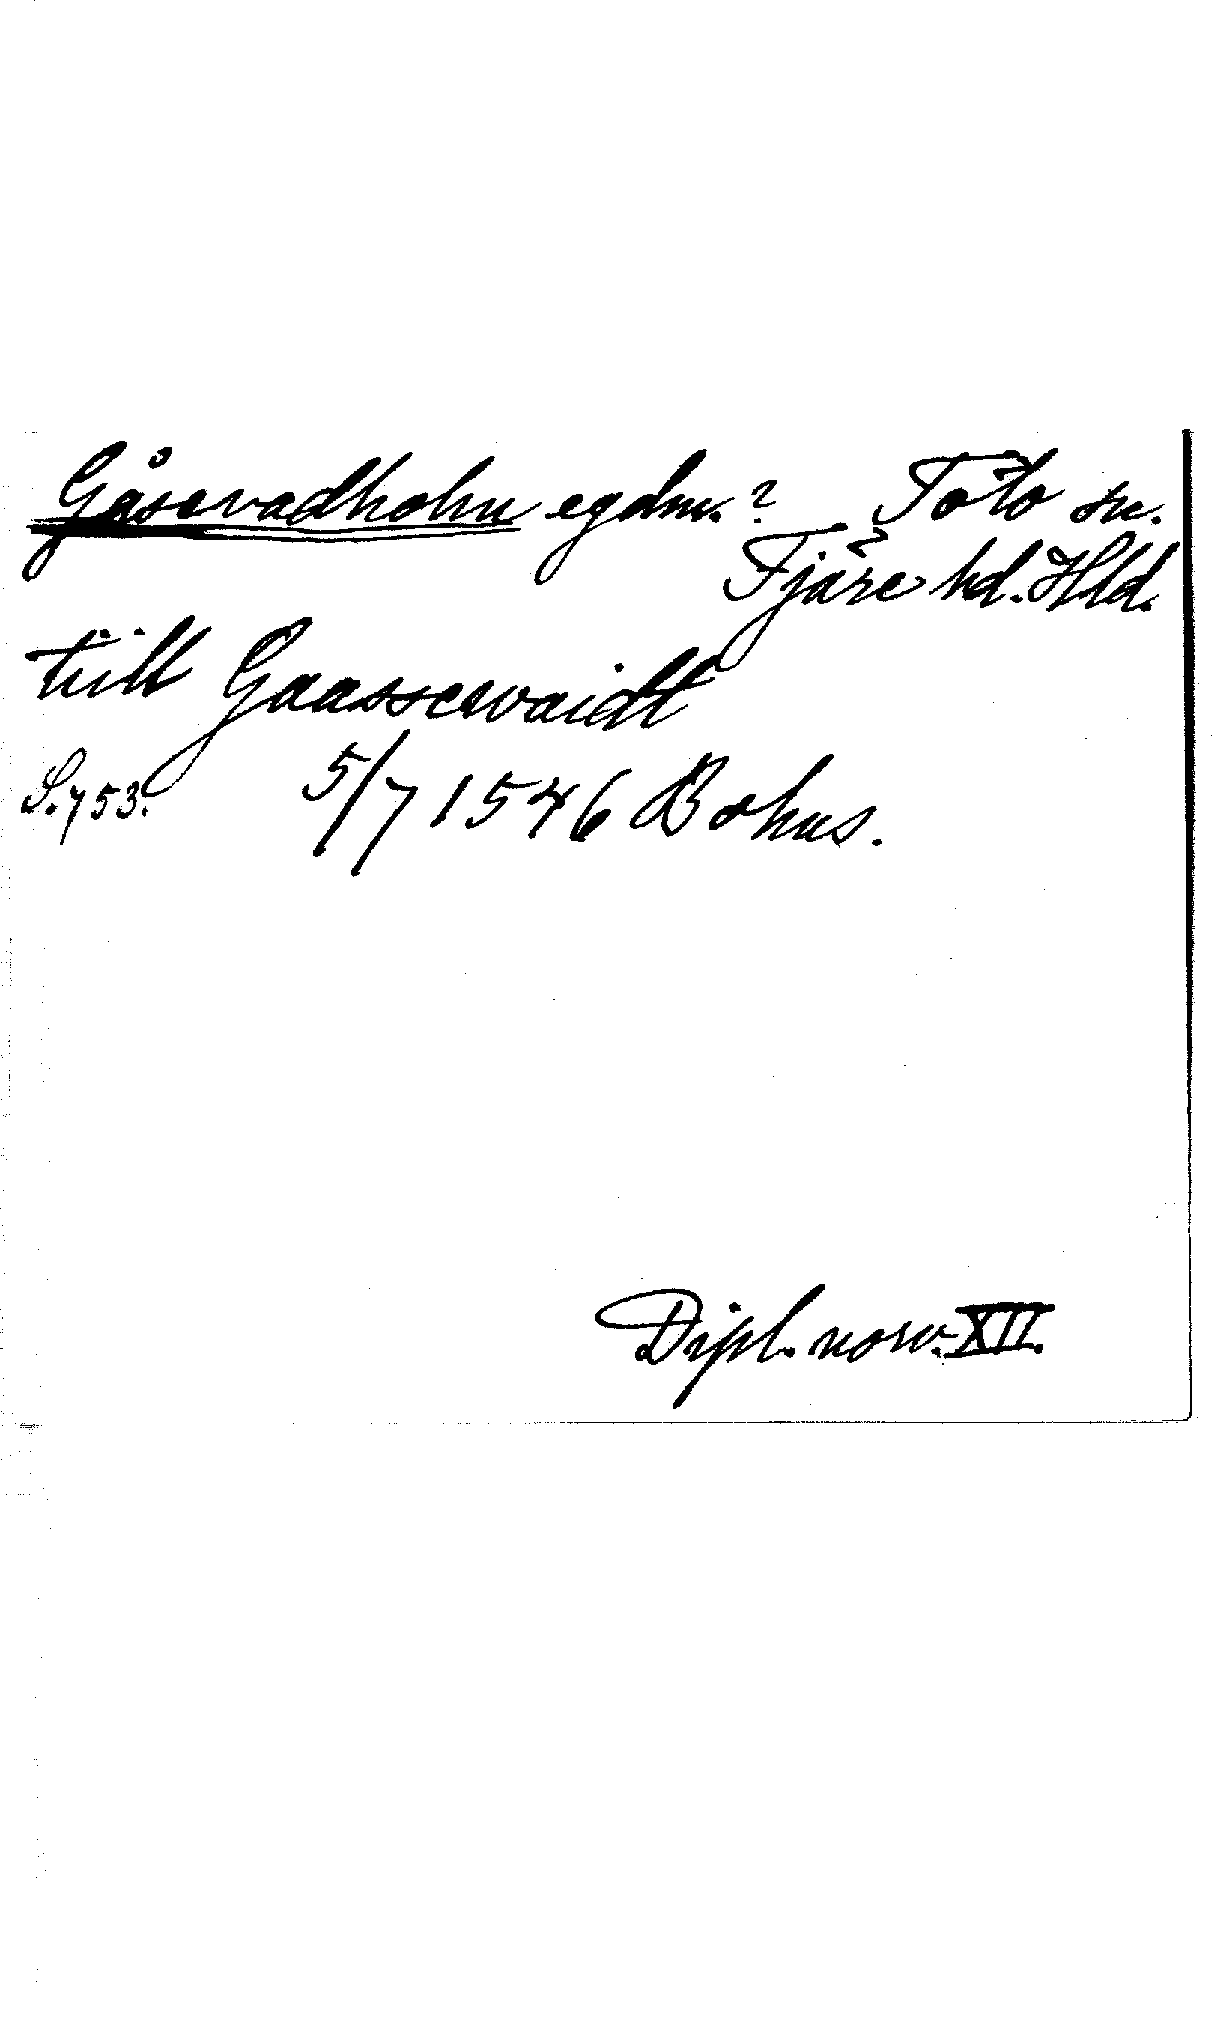 Gåsevadholm egdm.? Tölö sn.
Fjäre hd. Hld.
tiill Gaassewaidt
S. 753. 5/7 1546 Bohus.
Dipl. norv. XII.